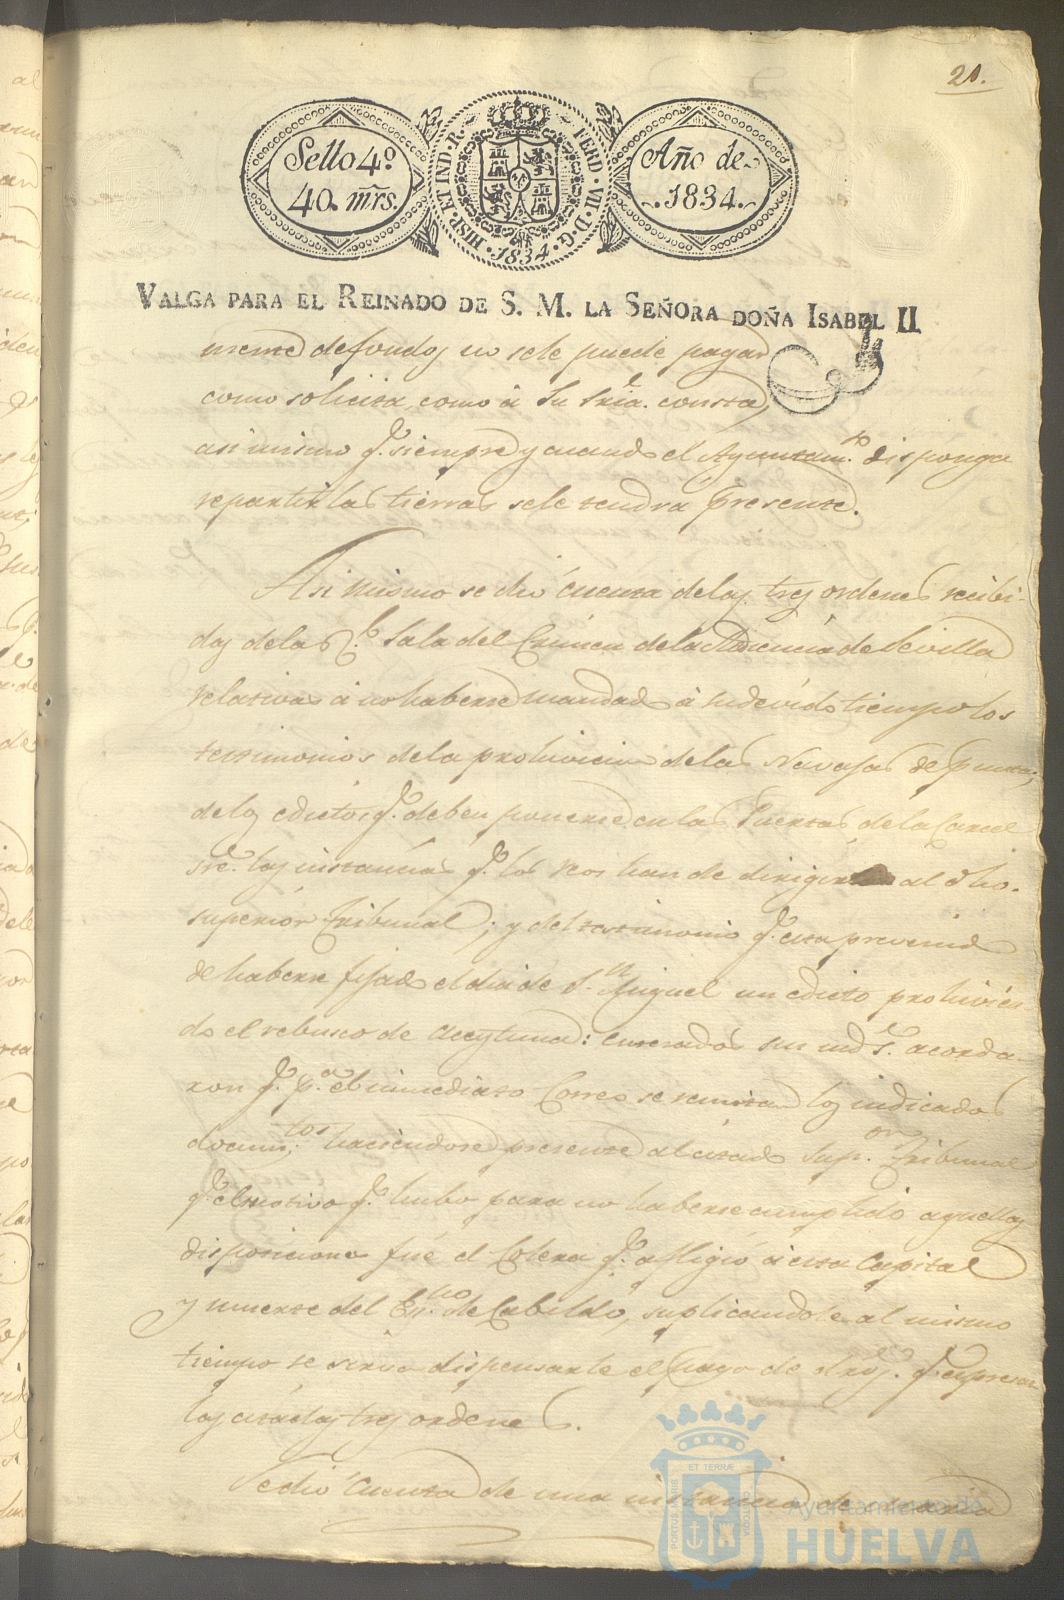 21.
Sello 4.º
40. mrs.
HISP. ET IND. R.
FERD. VII. D. G.
1834
Año de
1834.
VALGA PARA EL REINADO DE S. M. LA SEÑORA DOÑA ISABEL II
de fondos no sele puede pagar
como solicita, como à Su Sria. consta,
asi mismo q.e siempre y cuando el Ayuntam.to disponga
repartir las tierras sele tendra presente.
Asi mismo se dio cuenta delas tres ordenes recibi-
das dela R.l Sala del Crimen dela Audiencia de Sevilla
relativas à no haberse mandado à su devido tiempo los
testimonios dela prohivicion delas Navajas de punta;
delos edictos q.e deben ponerse en las Puertas dela Carcel
sre. las instancias q.e los reos han de dirigir al dho.
superior tribunal; y del testimonio q.e esta prevenido
de haberse fijado el dia de S.n Miguel un edicto prohivien-
do el rebusco de Aceytuna: Enterados sus md.s acorda-
ron q.e p.a el inmediato Correo se remitan los indicados
docum.tos haciendose presente al citado Sup.or tribunal
q.e el motivo q.e hubo para no haberse cumplido aquellas
disposiciones fué el Colera q.e afligió à esta Capital
y muerte del Es.no de Cabildo, suplicandole al mismo
tiempo se sirva dispensarle el pago de q.e expresan
las citadas tres ordenes.
Se dio Cuenta de una instancia de Maria
PORTUS MARIS
ET TERRÆ
CUSTODIA
Ayuntamiento de
HUELVA